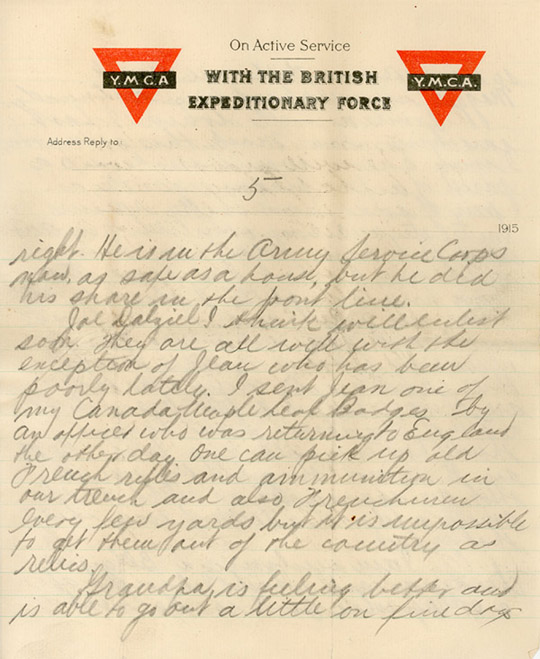 On Active Service
Y.M.C.A. WITH THE BRITISH Y.M.C.A.
EXPEDITIONARY FORCE
Address Reply to
5
1915
right. He is in the Army Service Corps
now, as safe as a house, but he did
his share in the front line.
Joe Dalziel I think will enlist
soon. They are all well with the
exception of Jean who has been
poorly lately. I sent Jean one of
my Canada Maple Leaf Badges by
an officer who was returning to England
the other day. One can pick up old
French rifles and ammunition in
our trench and also Frenchmen
every few yards but it is impossible
to get them out of the country as
relics.
Grandpa is feeling better and
is able to go out a little on fine days